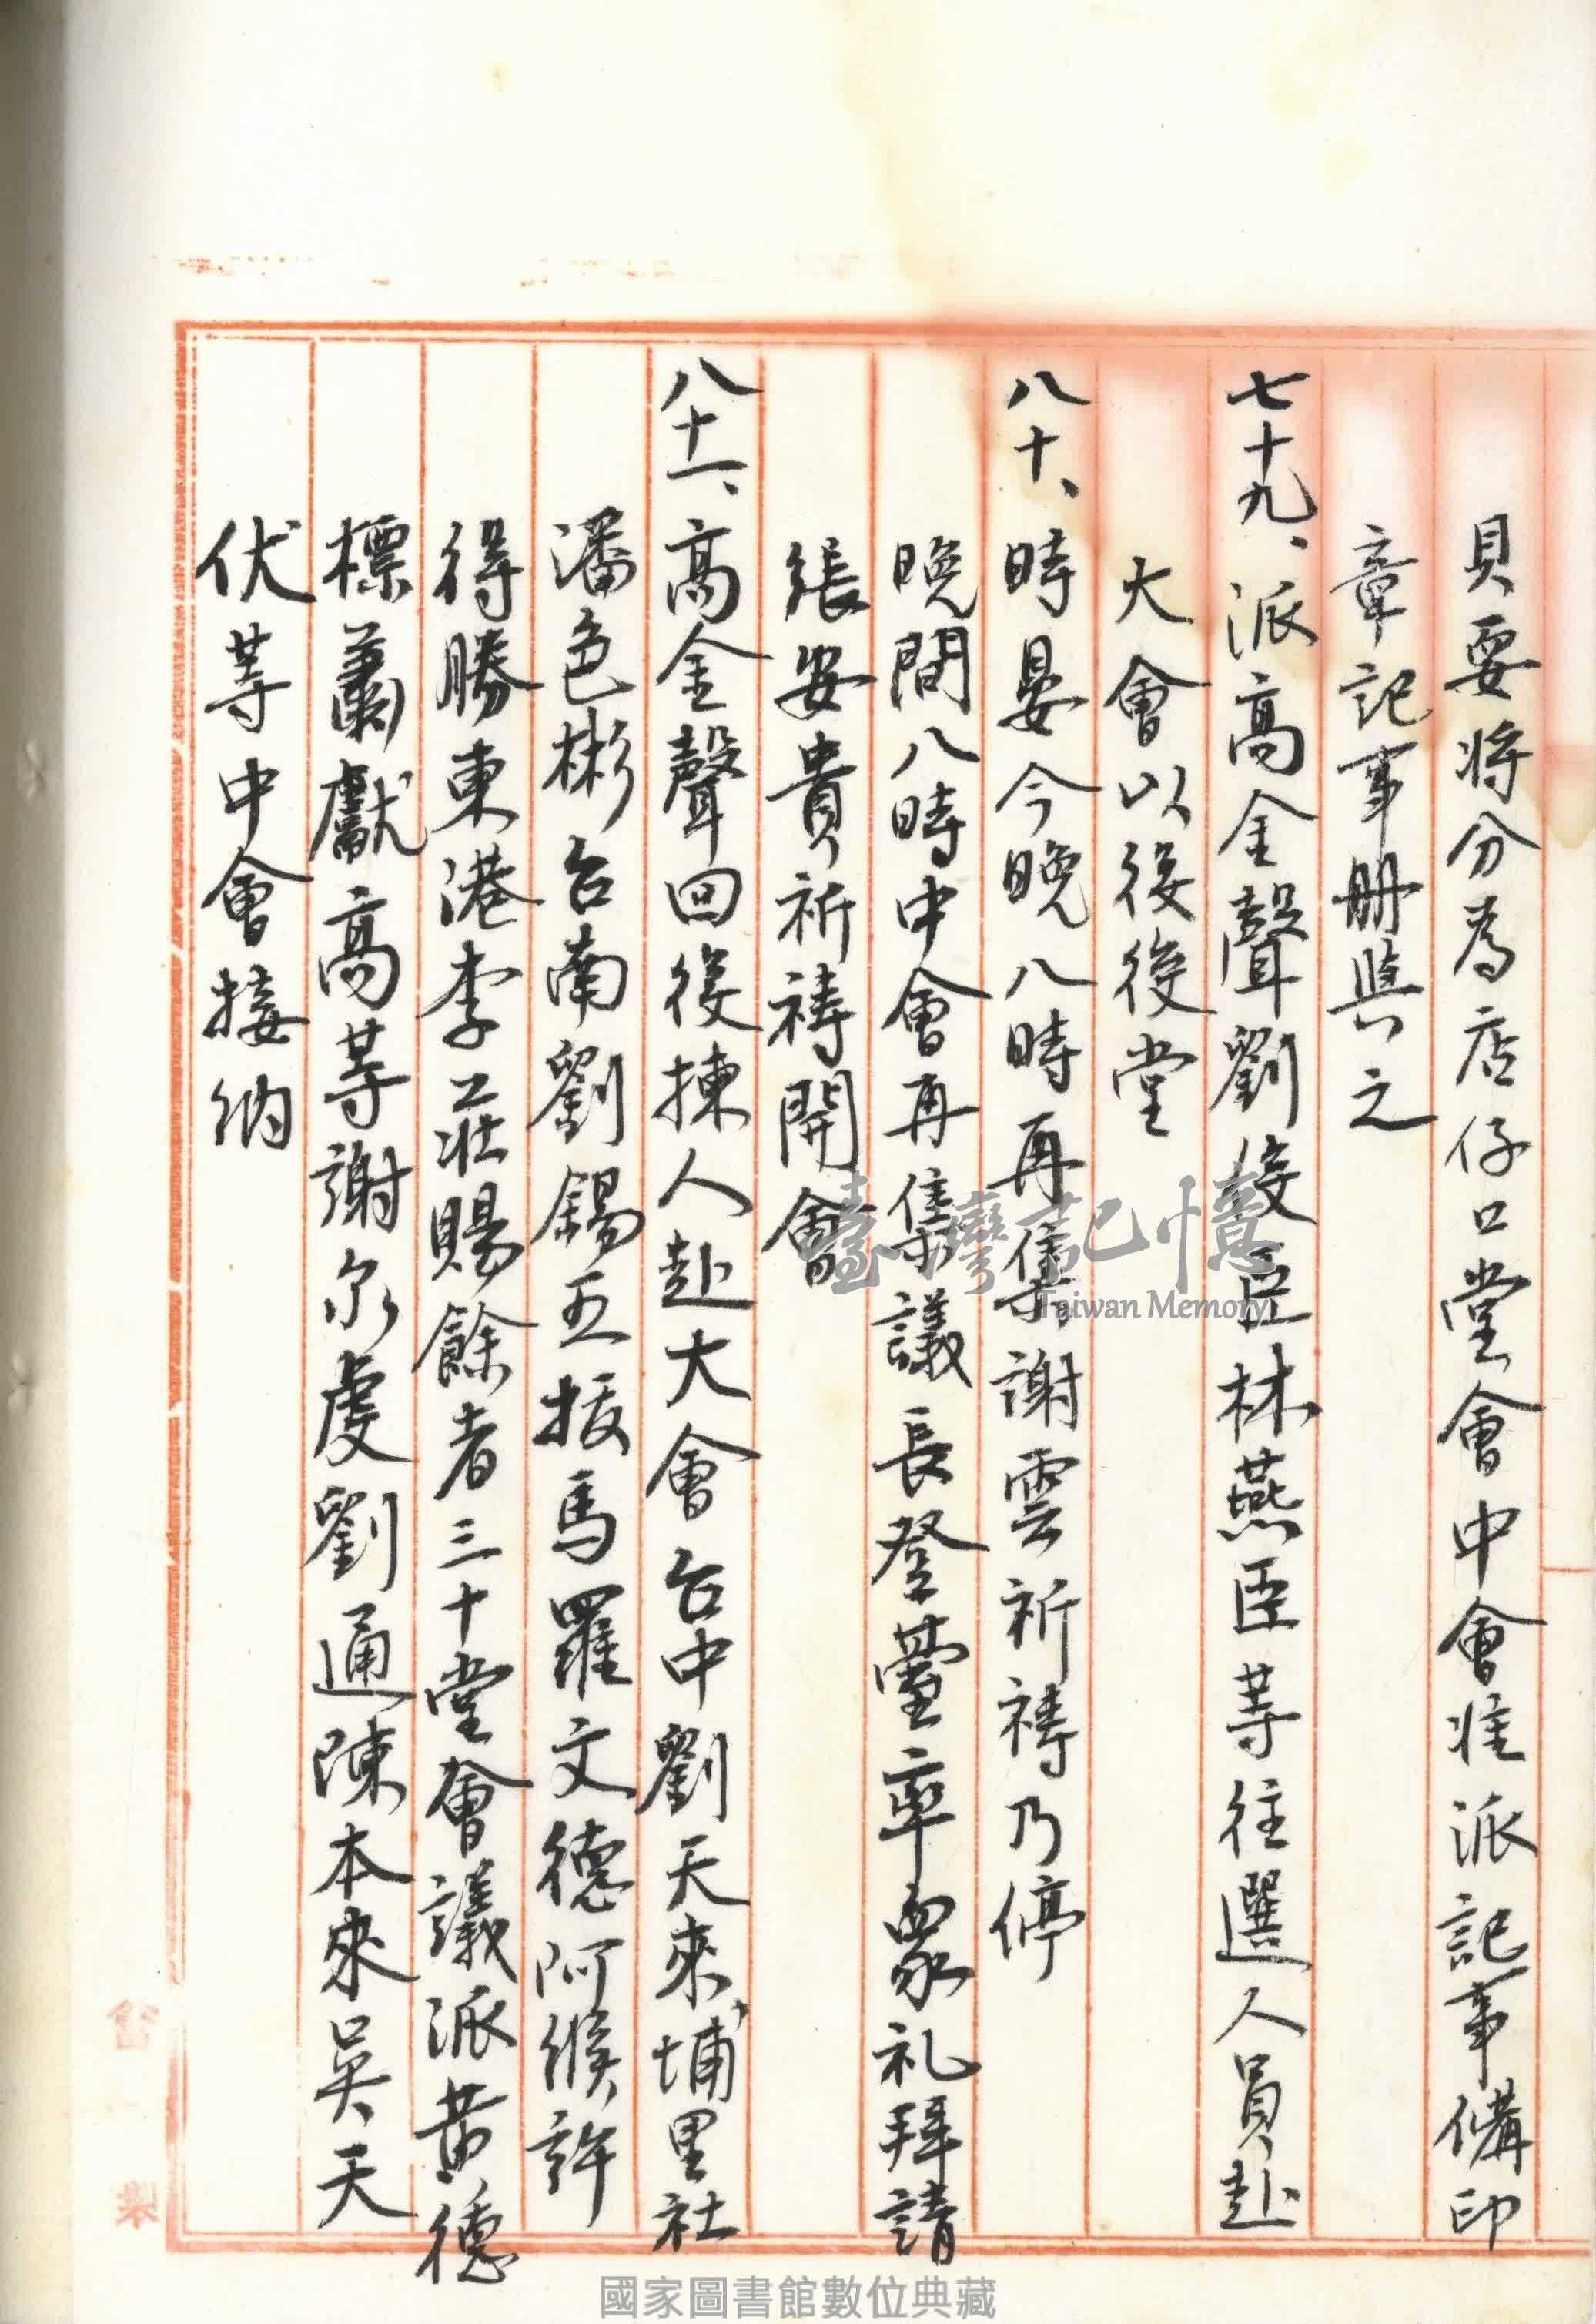 貝要將分為店仔口堂會中會准派記事備印
章記事册與之
七十九、派高金聲劉俊臣林燕臣等往選人員赴
大會以後復堂
八十、時晏今晚八時再集謝雲祈禱乃停
晚間八時中會再集議長登臺率眾礼拜請
張安貴祈禱開會
八十一、高金聲回後揀人赴大會台中劉天來埔里社
潘色彬台南劉錫五拔馬羅文德阿緱許
得勝東港李庄賜餘者三十堂會議派黃德
標蕭獻高等謝尔虔劉通陳本來吳天
伏等中會接納
臺灣記憶
Taiwan Memory
國家圖書館數位典藏